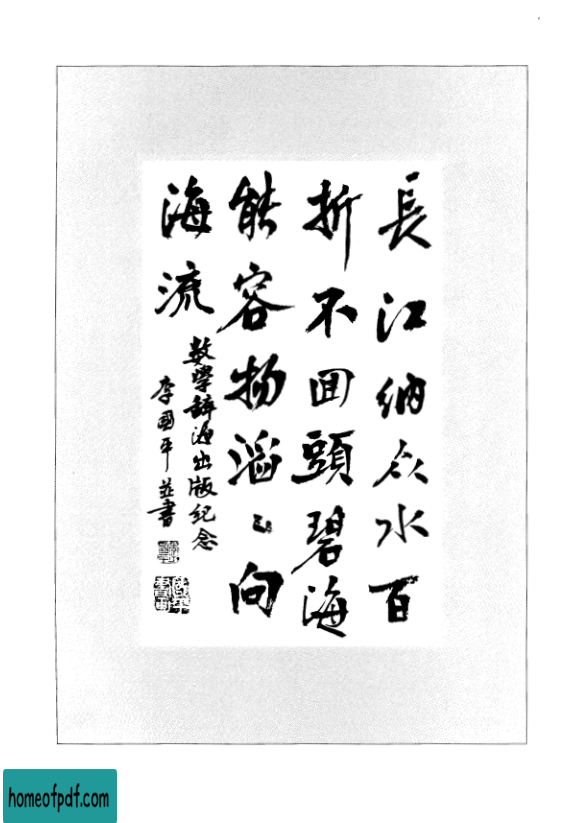 長江納众水百
折不回頭碧海
能容物滔〻向
海流
数學辞海出版纪念
李國平並書
homeofpdf.com